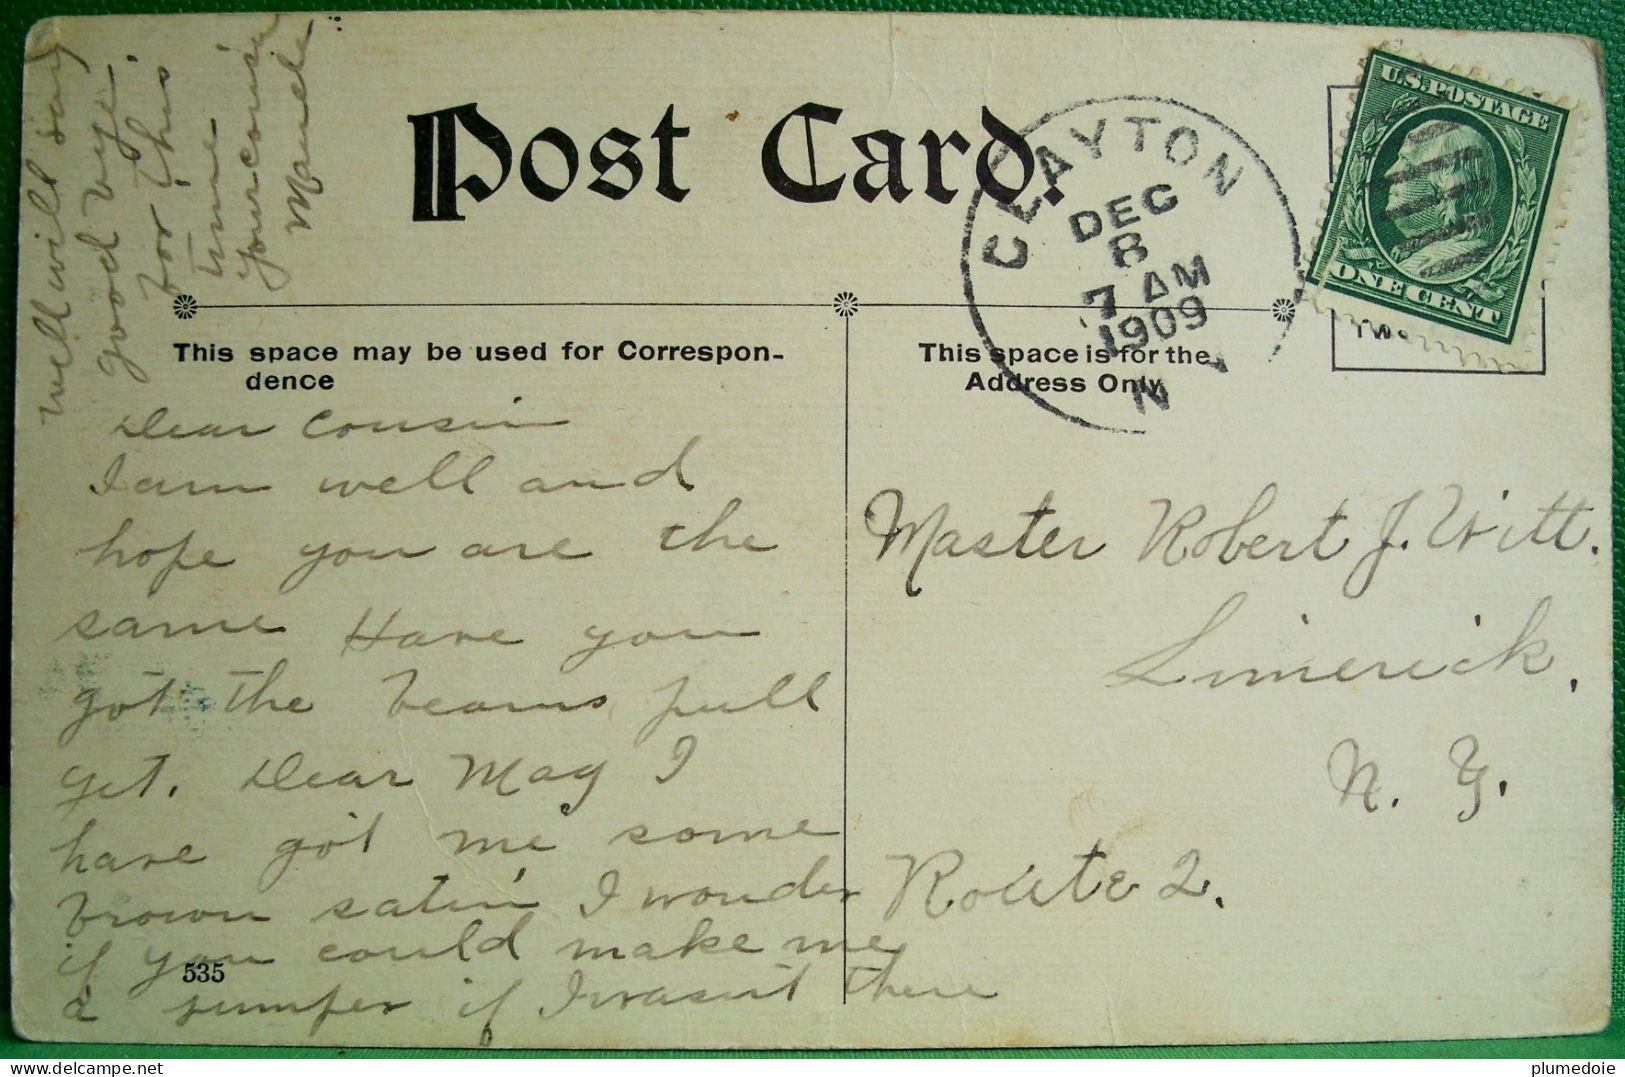 Post Card.
CLAYTON
DEC
8
7 AM
1909
N
U.S. POSTAGE
ONE CENT
TW
This space may be used for Correspon-
dence
This space is for the
Address Only
Dear Cousin
I am well and
hope you are the
same Have you
got the beans pull
yet. Dear May I
have got me some
brown satin I wonder
if you could make me
a jumper if I wasn't there
535
well will say
good bye
for this
time
your cousin
Maude
Master Robert J. Witt.
Limerick,
N. Y.
Route 2.
plumedoie